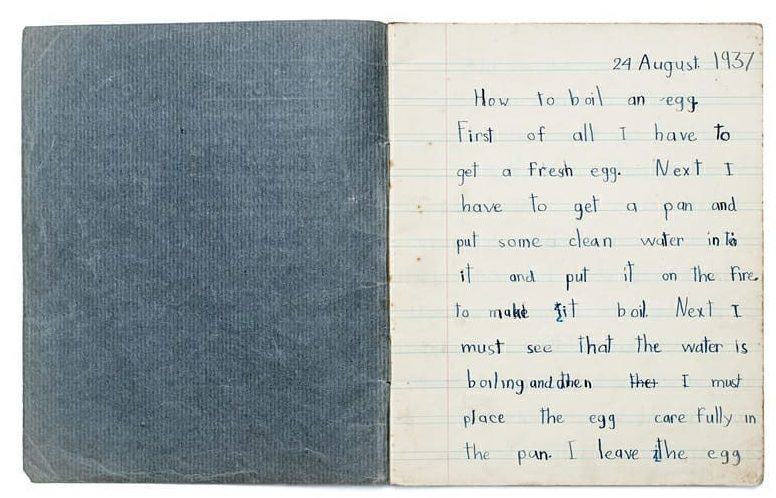 24 August. 1937
How to boil an egg
First of all I have to
get a fresh egg. Next I
have to get a pan and
put some clean water into
it and put it on the fire
to make it boil. Next I
must see that the water is
boiling and then I must
place the egg carefully in
the pan. I leave the egg